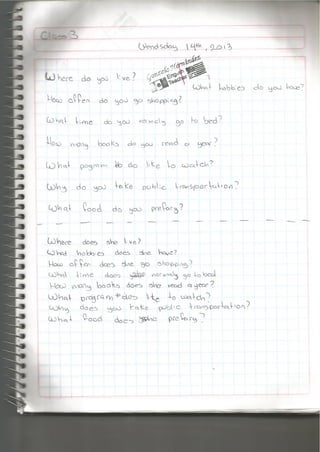 Class 3
Wendsday 14th, 2013
Gonzalo Hernández
English
Teacher
Where do you live?
What hobbies do you have?
How offen do you go shopping?
What time do you normaly go to bed?
How many books do you read a year?
What pogram do like to watch?
Why do you take public transportation?
What food do you prefary?
Where does she live?
What hobbies does she have?
How offen does she go shopping?
What time does she normaly go to bed
How many books does she read a year?
What program does like to watch?
Why does you take public transportation?
What food does she prefary?